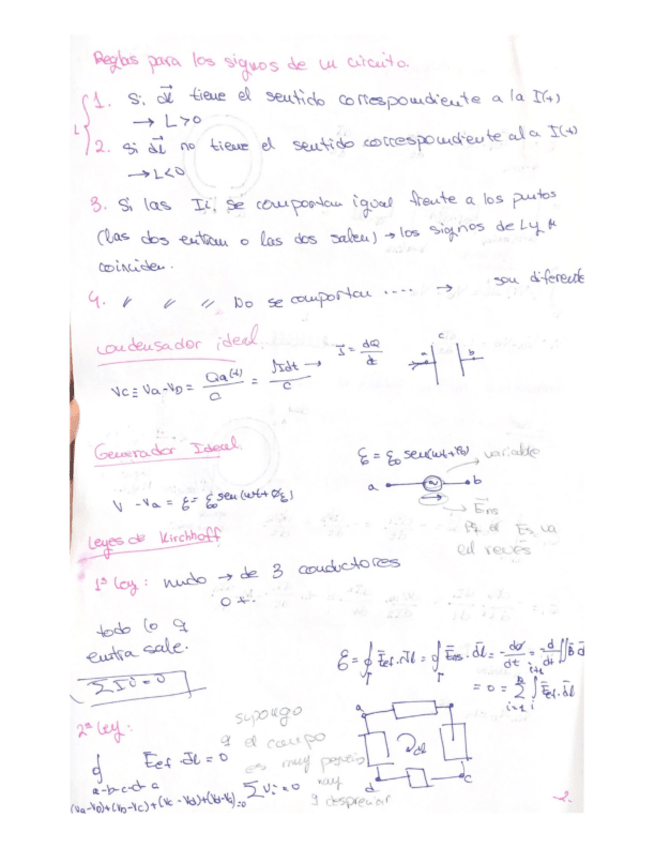 Reglas para los signos de un circuito.
L { 1. Si dl tiene el sentido correspondiente a la I(+)
→ L>0
2. Si dl no tiene el sentido correspondiente a la I(+)
→ L<0
3. Si las Ii, se comportan igual frente a los puntos
(las dos entran o las dos salen) → los signos de L y M
coinciden.
4. " " " No se comportan ···· → son diferente
Condensador ideal.
Vc ≡ Va-Vb = Qa(t)/C = ∫Idt/C → I = dQ/dt
c
a b
Generador Ideal
ξ = ξ0 sen(wt+φ) variable
a b
V - Va = ξ = ξ0 sen(wt+φξ)
Ens
Pq el Es va
el revés
Leyes de Kirchhoff
1ª Ley: nudo → de 3 conductores
o +.
todo lo q
entra sale.
ΣIi=0
ξ = ∮ Eef · dl = ∮ Ens · dl = -dΦ/dt = -d/dt ∬ B d
= 0 = Σ ∫ Eef · dl
i=1 i
2ª Ley:
supongo
q el campo
es muy pequeño
hay
q despreciar
∮ Eef · dl = 0
a-b-c-d-a
(Va-Vb)+(Vb-Vc)+(Vc-Vd)+(Vd-Va)=0
ΣVi=0
a dl d c
2.